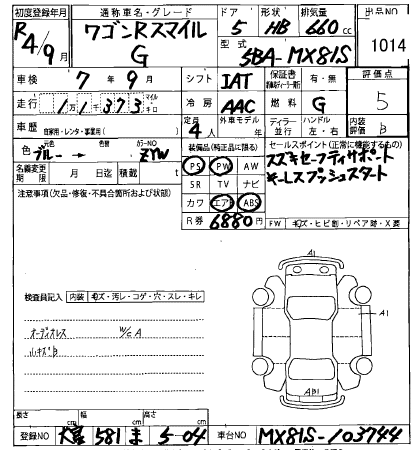 初度登録年月 通称車名・グレード ドア 形状 排気量 出品NO
R4/9月 ワゴンRスマイル G 5 HB 660cc 1014
型式 5BA-MX81S
車検 7年9月 シフト IAT 保証書 有・無 評価点
走行 11373 マイル キロ 冷房 AAC 燃料 G 5
車歴 自家用・レンタ・事業用( ) 定員 4人 外車モデル 年 ディーラー 並行 ハンドル 左・右 内装評価 B
色 ブルー→ 色替 カラーNO ZYW
装備品(純正品に限る) セールスポイント(正常に機能するもの)
名義変更期限 月 日迄 積載 t
PS PW AW
スズキセーフティサポート
キーレスプッシュスタート
注意事項(欠品・修復・不具合箇所および状態)
SR TV ナビ
カワ エアB ABS
R券 6880円
FW キズ・ヒビ割・リペア跡・X要
検査員記入 内装 キズ・汚レ・コゲ・穴・スレ・キレ
オーディオレス W/C A
小キズB
A1
A1
AB1
長さ cm 幅 cm 高さ cm
登録NO 大宮 581 ま 5-04 車台NO MX81S-103744